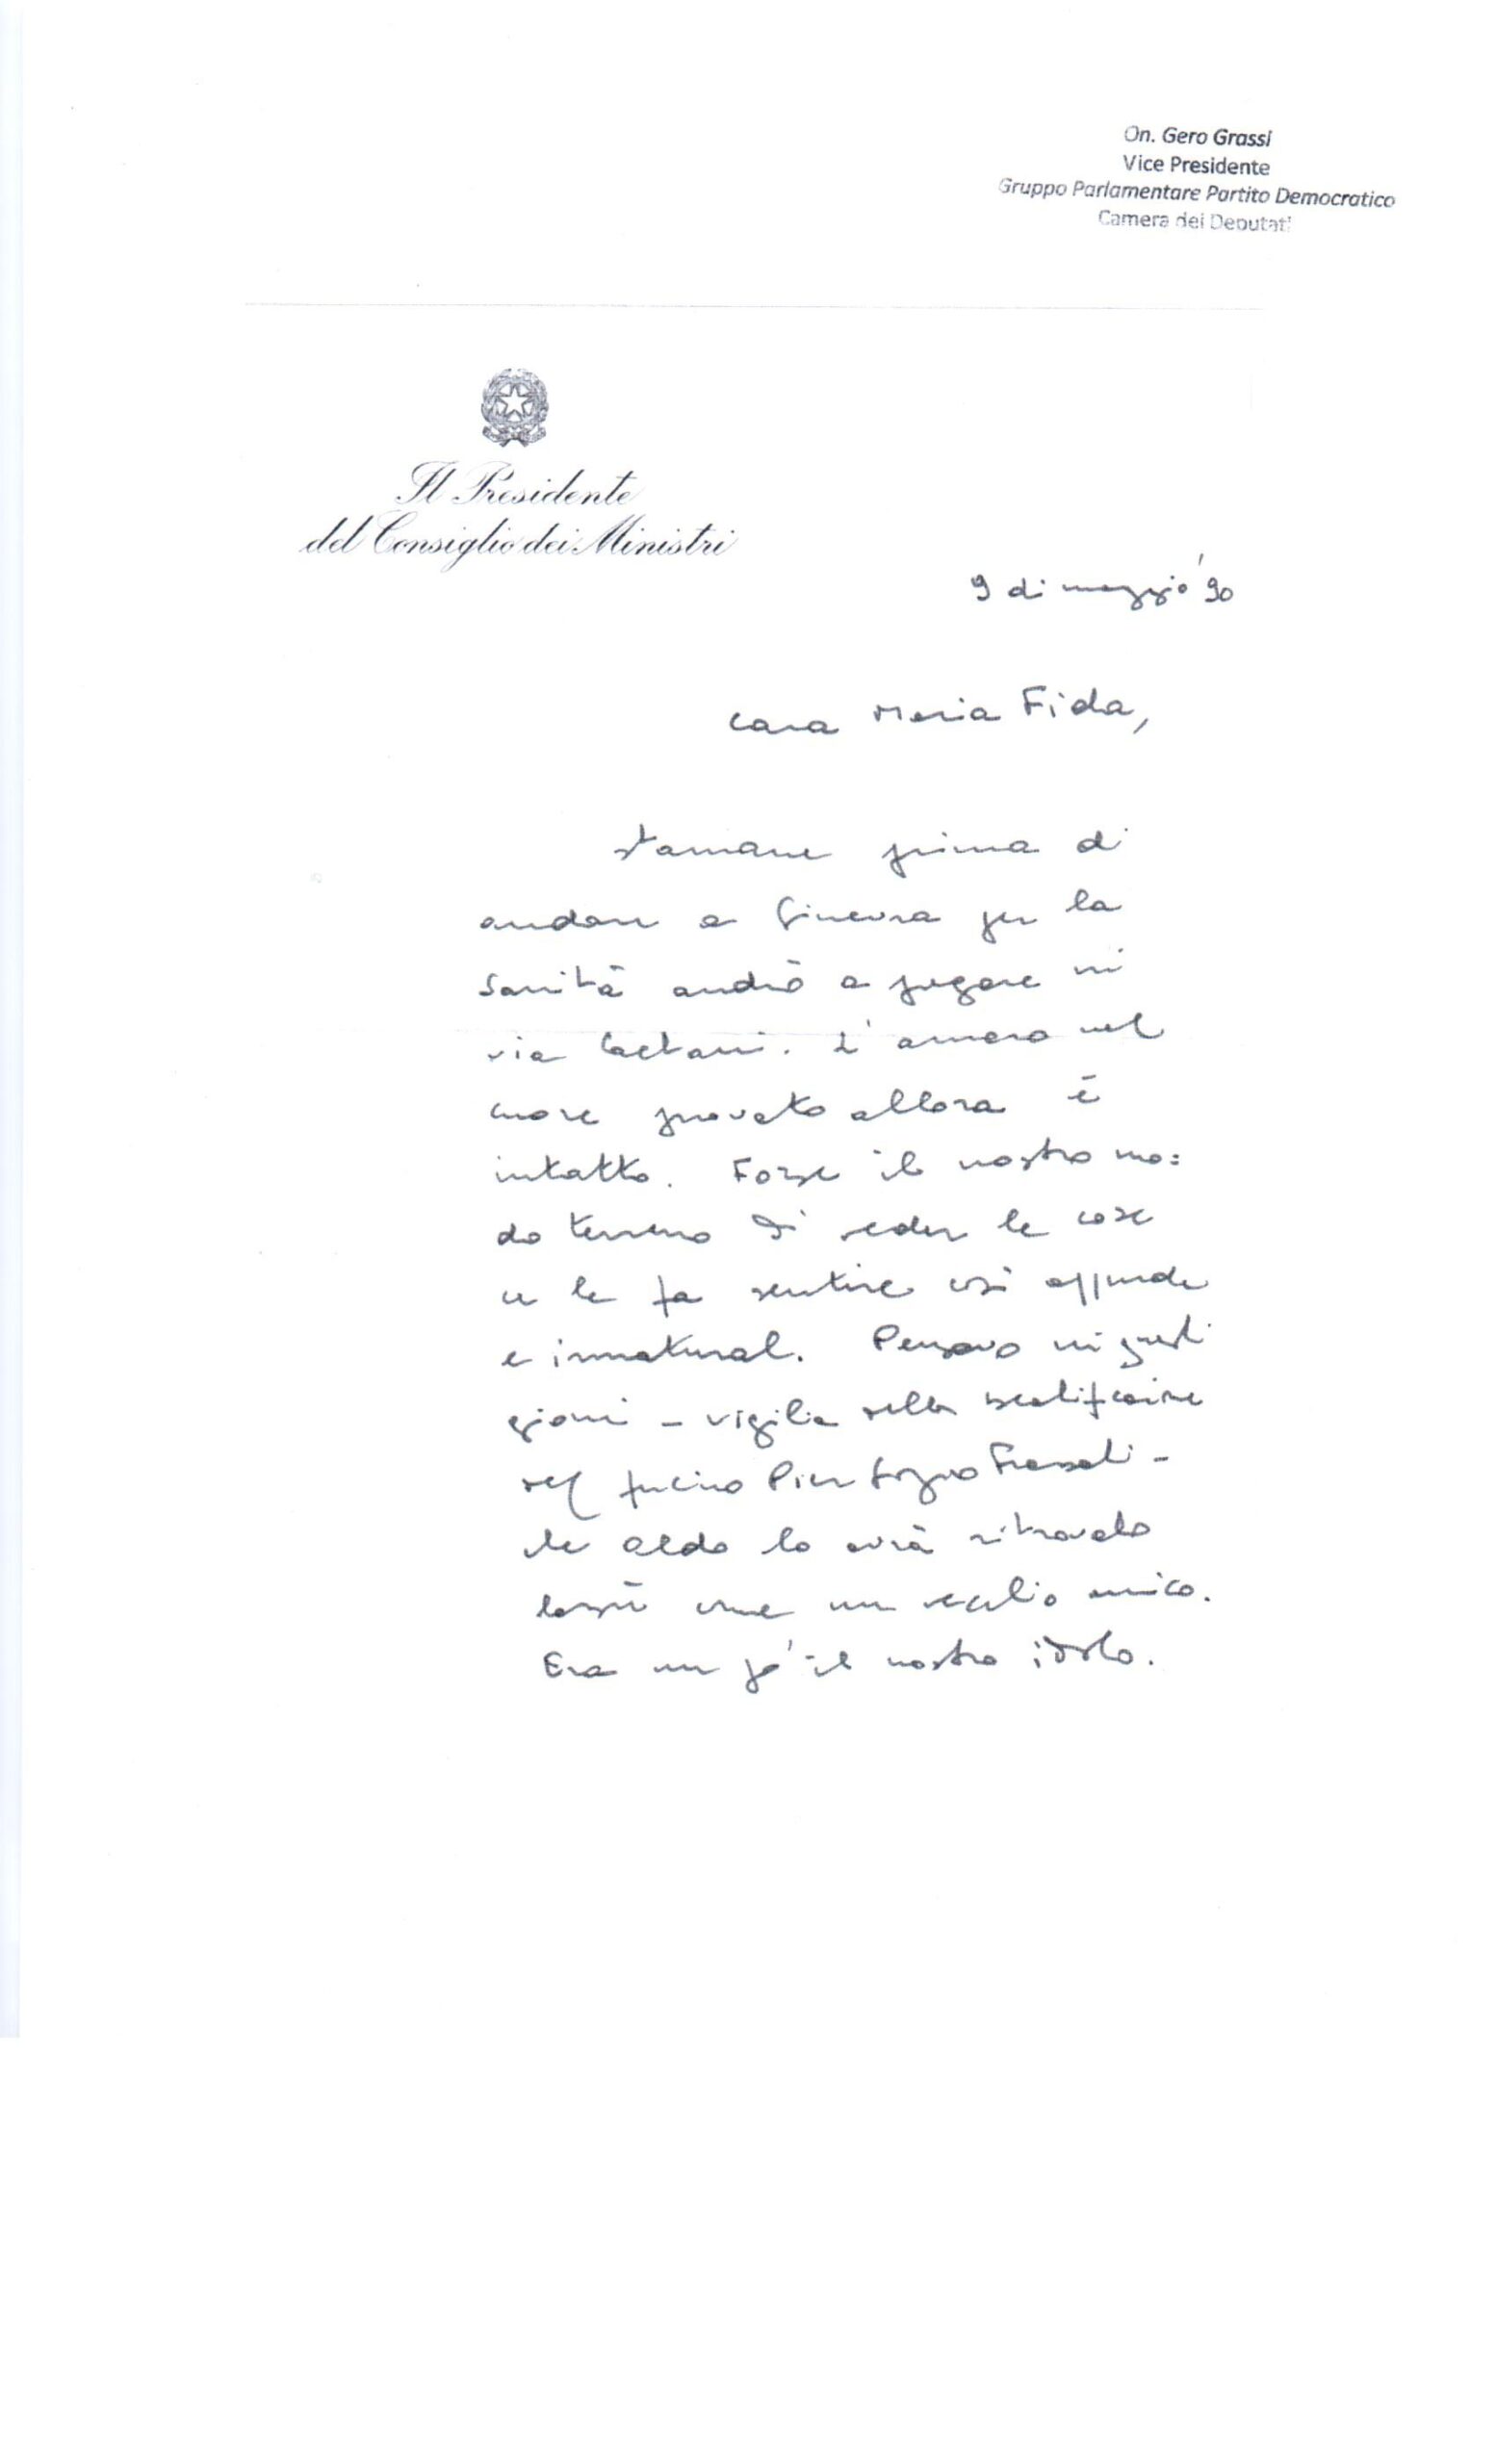 On. Gero Grassi
Vice Presidente
Gruppo Parlamentare Partito Democratico
Camera dei Deputati
Il Presidente
del Consiglio dei Ministri
9 di maggio '90
Cara Maria Fida,
stamane prima di
andare a Ginevra per la
Sanità andrò a pregare in
via Caetani. L'amaro nel
cuore provato allora è
intatto. Forse il nostro mo=
do terreno di veder le cose
ce le fa sentire così
e innatural. Pensavo in questi
giorni - vigilia della beatificazione
del fucino Pier Giorgio Frassati -
che Aldo lo avrà ritrovato
lassù come un vecchio amico.
Era un po' il nostro idolo.